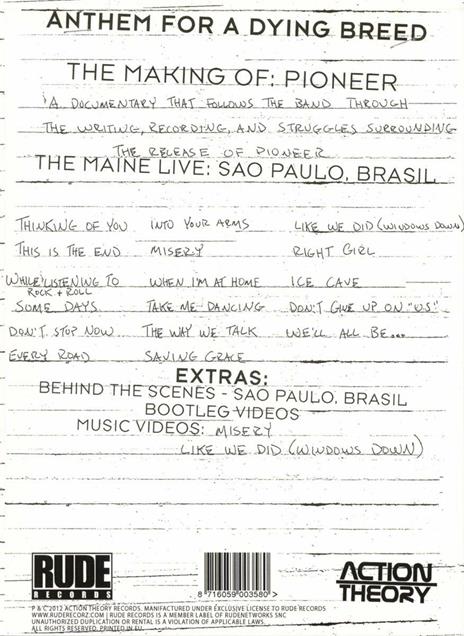 ANTHEM FOR A DYING BREED
THE MAKING OF: PIONEER
A DOCUMENTARY THAT FOLLOWS THE BAND THROUGH
THE WRITING, RECORDING, AND STRUGGLES SURROUNDING
THE RELEASE OF PIONEER
THE MAINE LIVE: SAO PAULO, BRASIL
THINKING OF YOU INTO YOUR ARMS LIKE WE DID (WINDOWS DOWN)
THIS IS THE END MISERY RIGHT GIRL
WHILE LISTENING TO WHEN I'M AT HOME ICE CAVE
ROCK + ROLL
SOME DAYS TAKE ME DANCING DON'T GIVE UP ON "US"
DON'T STOP NOW THE WAY WE TALK WE'LL ALL BE...
EVERY ROAD SAVING GRACE
EXTRAS:
BEHIND THE SCENES - SAO PAULO, BRASIL
BOOTLEG VIDEOS
MUSIC VIDEOS: MISERY
LIKE WE DID (WINDOWS DOWN)
RUDE
RECORDS
8 716059 003580 >
ACTION
THEORY
P & C 2012 ACTION THEORY RECORDS. MANUFACTURED UNDER EXCLUSIVE LICENSE TO RUDE RECORDS
WWW.RUDERECORZ.COM | RUDE RECORDS IS A MEMBER LABEL OF RUDENETWORKS SNC
UNAUTHORIZED DUPLICATION OR RENTAL IS A VIOLATION OF APPLICABLE LAWS.
ALL RIGHTS RESERVED. PRINTED IN EU.